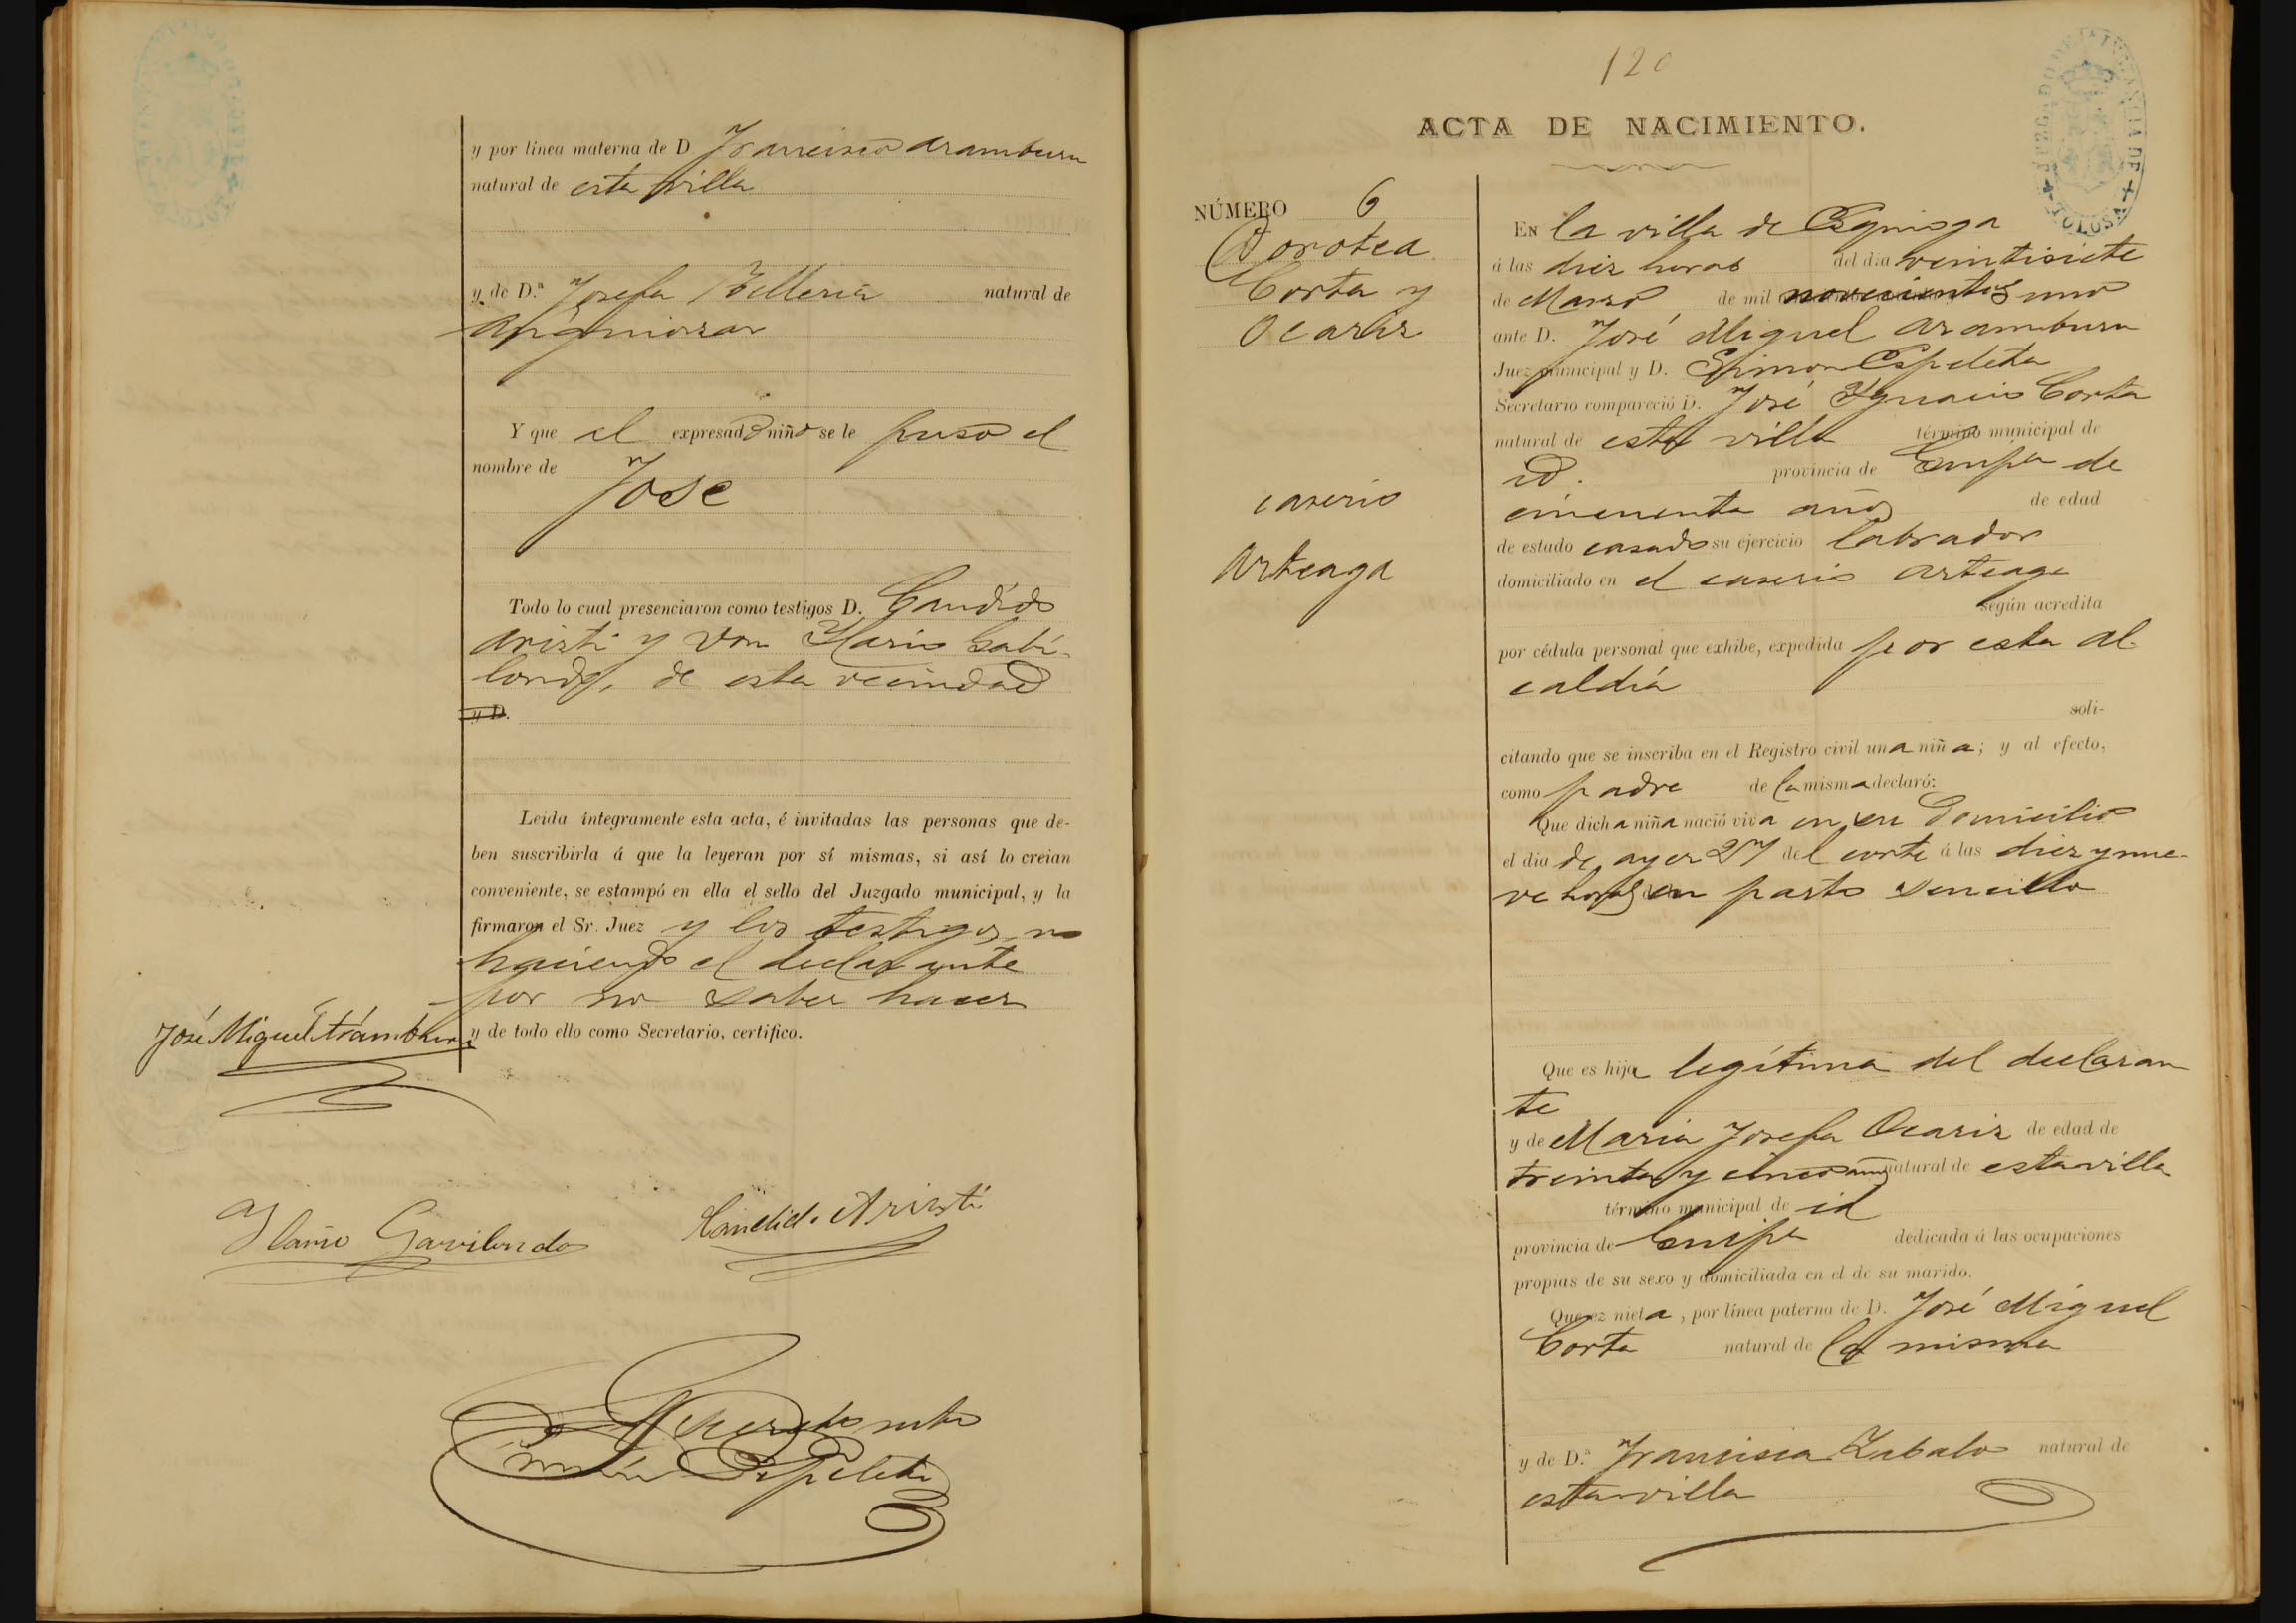 y por línea materna de D. Francisco Aramburu
natural de esta villa
y de D.ª Josefa Telleria natural de
Y que el expresado niño se le puso el
nombre de
Jose
Todo lo cual presenciaron como testigos D. Candido
Aristi y Don Ilario Gabi-
londo, de esta vecindad
y D.
Leida íntegramente esta acta, é invitadas las personas que de-
ben suscribirla á que la leyeran por sí mismas, si así lo creian
conveniente, se estampó en ella el sello del Juzgado municipal, y la
firmaron el Sr. Juez y los testigos, no
haciendo el declarante
por no saber hacer
y de todo ello como Secretario, certifico.
José Miguel Aramburu
Ilario Gavilondo
Candido Aristi
Simón Espeleta
120
ACTA DE NACIMIENTO.
JUZGADO DE 1.ª INSTANCIA DE TOLOSA
NÚMERO 6
Dorotea
Corta y
Ocariz
caserio
Arteaga
En la villa de
á las diez horas del dia veintisiete
de Marzo de mil novecientos uno
ante D. José Miguel Aramburu
Juez municipal y D. Simon Espeleta
Secretario compareció D. José Ygnacio Corta
natural de esta villa término municipal de
id. provincia de Guipª de
cincuenta años de edad
de estado casado su ejercicio labrador
domiciliado en el caserio Arteaga
según acredita
por cédula personal que exhibe, expedida por esta al-
caldía
soli-
citando que se inscriba en el Registro civil una niña; y al efecto,
como padre de la misma declaró:
Que dicha niña nació viva en su domicilio
el dia de ayer 27 del corte á las diez y nue-
ve horas en parto sencillo
Que es hija legítima del declaran
te
y de Maria Josefa Ocariz de edad de
treinta y cinco años natural de esta villa
término municipal de id
provincia de Guipª dedicada á las ocupaciones
propias de su sexo y domiciliada en el de su marido.
Que ez nieta, por línea paterna de D. José Miguel
Corta natural de la misma
y de D.ª Francisca Zabalo natural de
esta villa